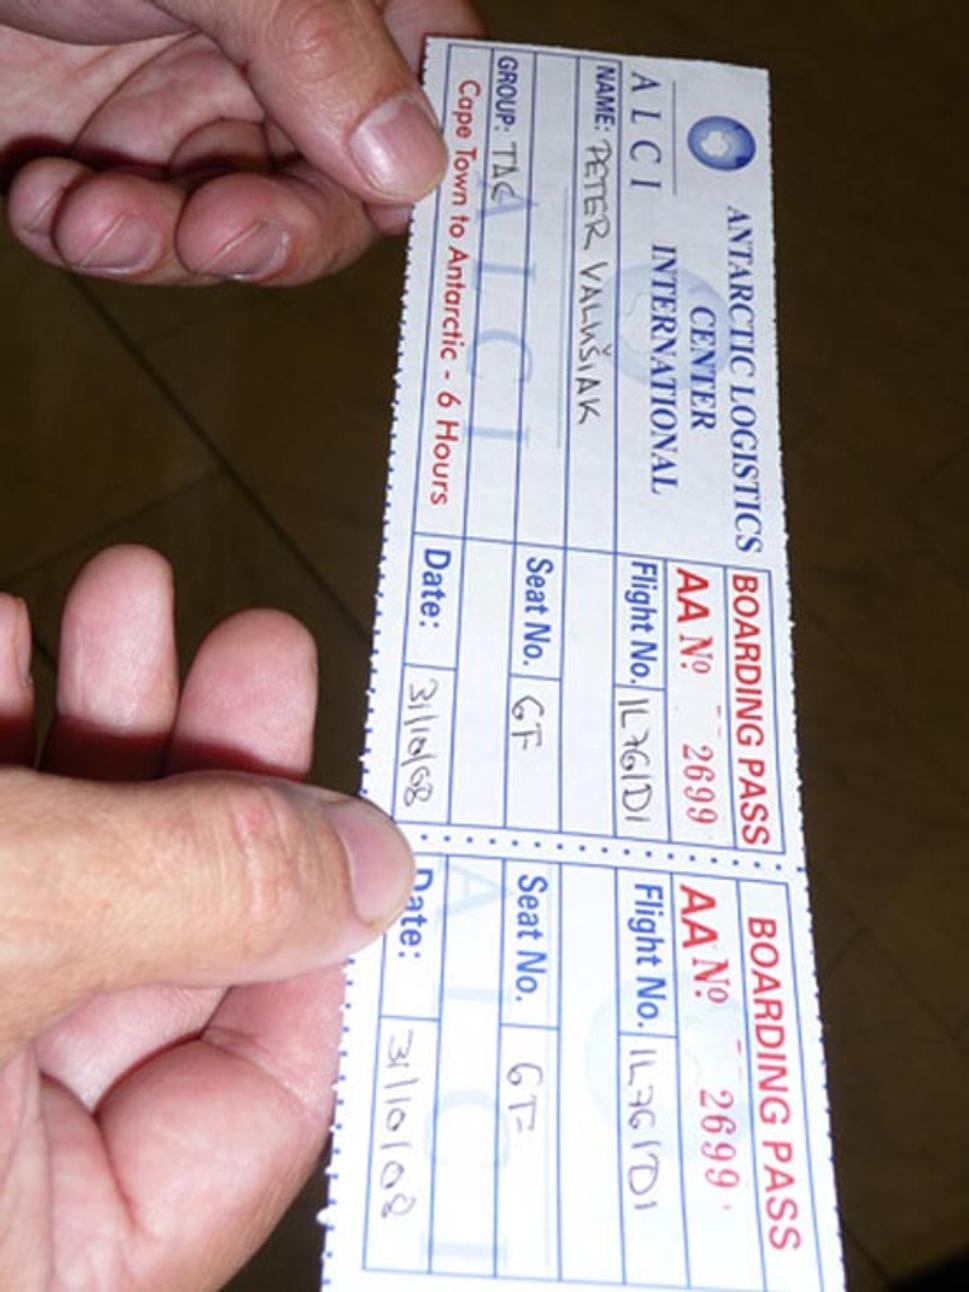 ANTARCTIC LOGISTICS
CENTER
INTERNATIONAL
A L C I
NAME: PETER VALUŠIAK
GROUP: TAC
Cape Town to Antarctic - 6 Hours
BOARDING PASS
AA Nº 2699
Flight No. IL76/D1
Seat No. 6F
Date: 31/10/08
BOARDING PASS
AA Nº 2699
Flight No. IL76/D1
Seat No. 6F
Date: 31/10/08
A L C I
A L C I